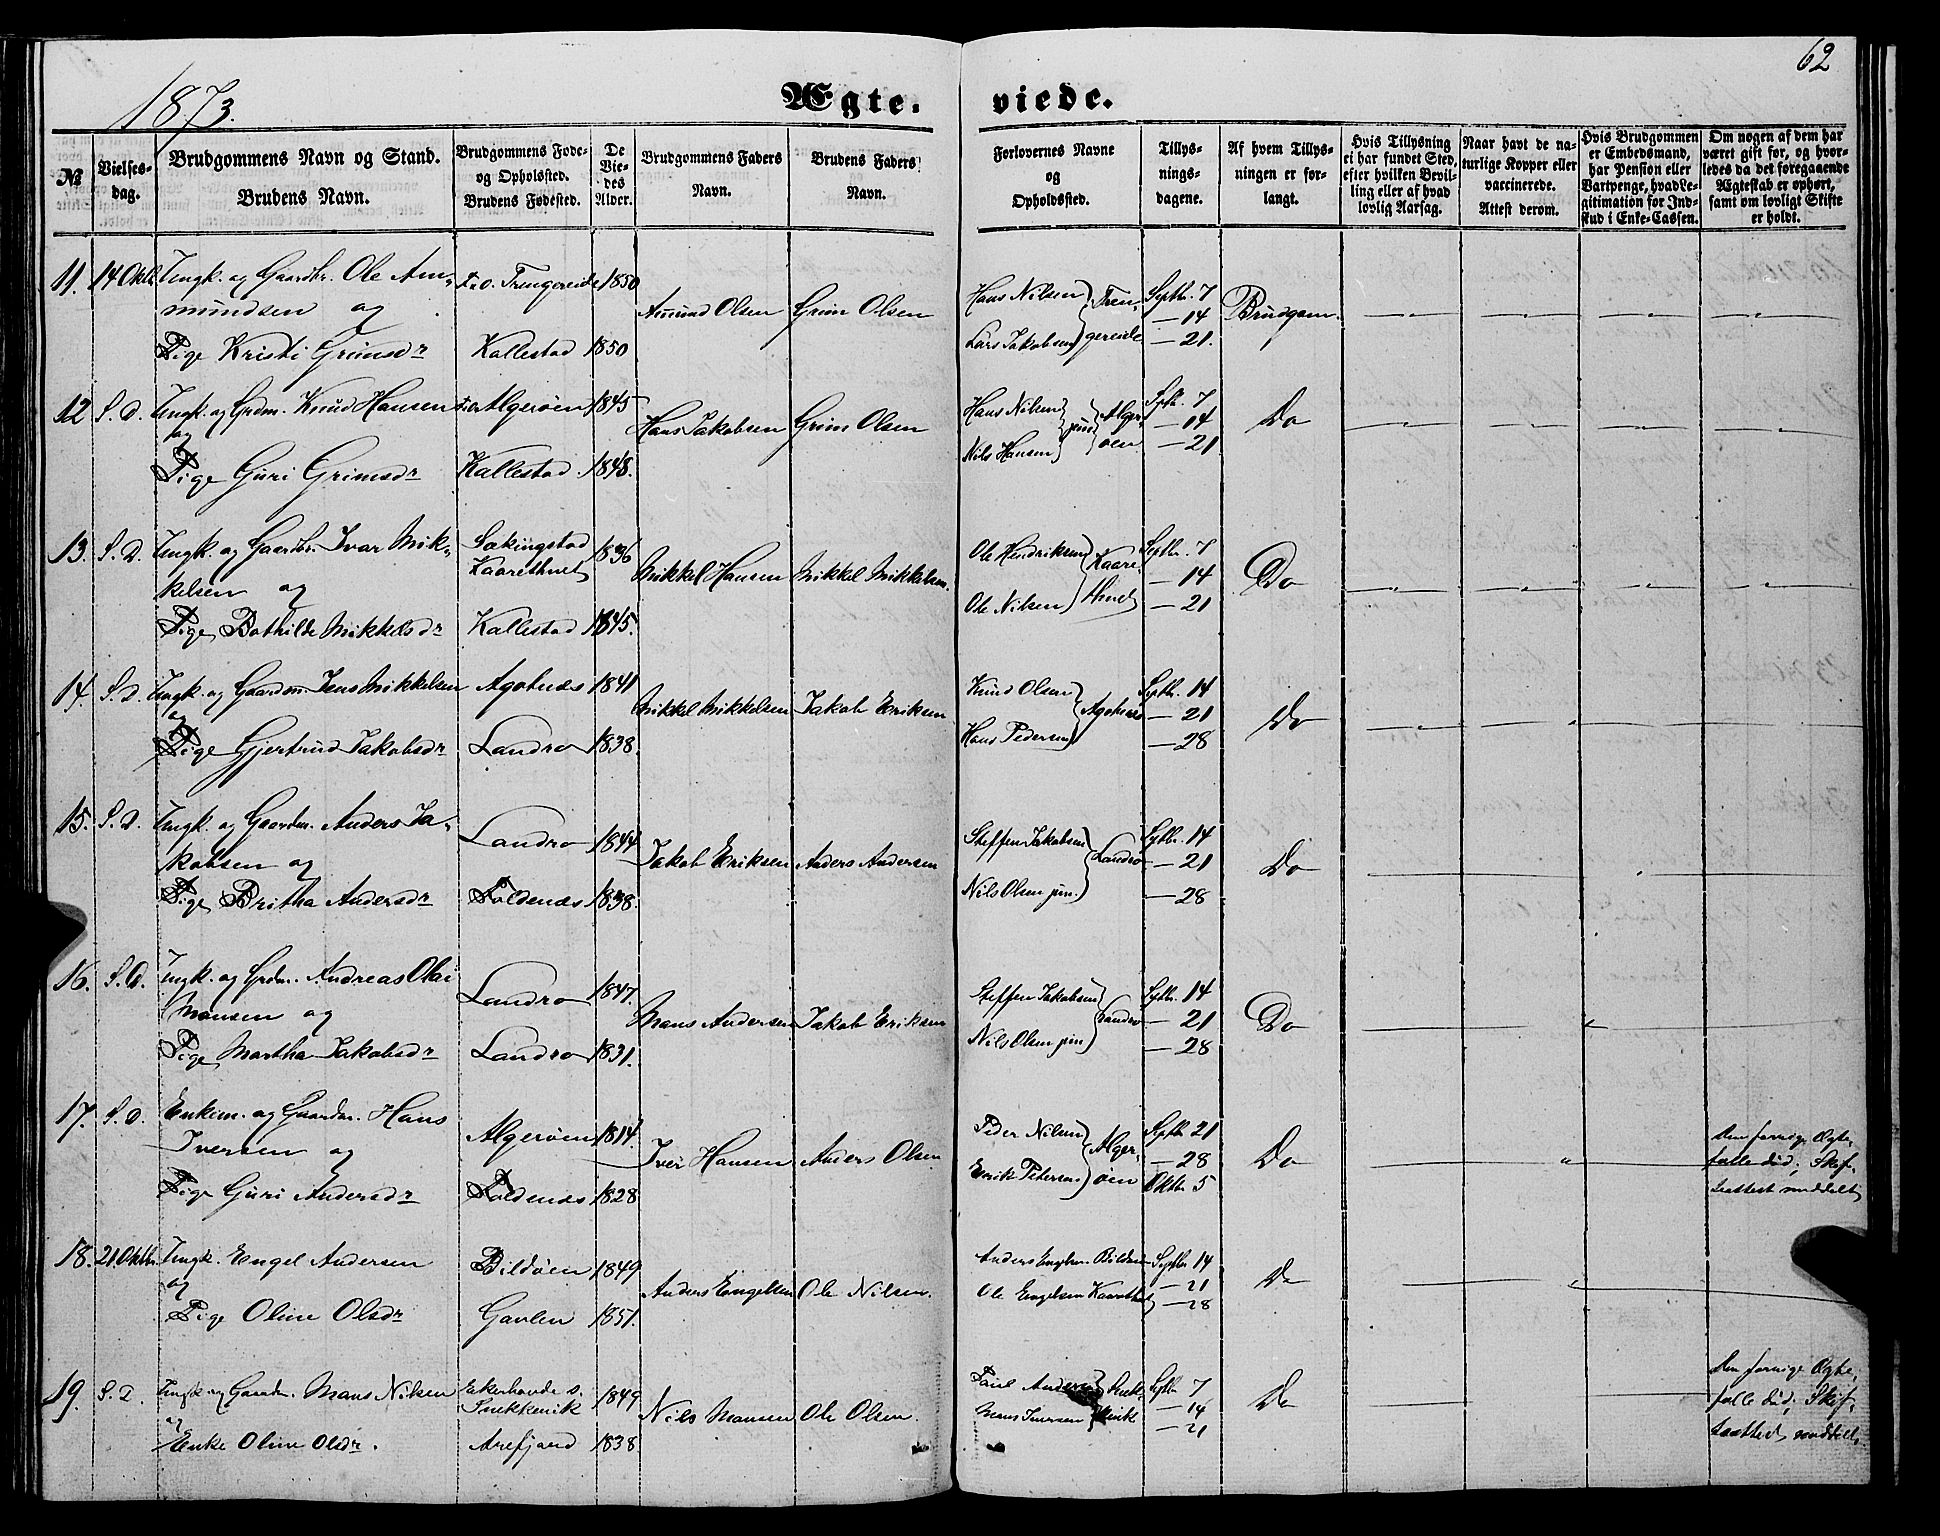 1873.
Ægte.
viede.
62
№
Vielses-
dag.
Brudgommens Navn og Stand.
Brudens Navn.
Brudgommens Føde-
og Opholdssted.
Brudens Fødested.
De
Vie-
des
Alder.
Brudgommens Faders
Navn.
Brudens Faders
Navn.
Forlovernes Navne
og
Opholdssted.
Tillys-
nings-
dagene.
Af hvem Tillys-
ningen er for-
langt.
Hvis Tillysning
ei har fundet Sted,
efter hvilken Bevil-
ling eller af hvad
lovlig Aarsag.
Naar havt de na-
turlige Kopper eller
vaccinerede.
Attest derom.
Hvis Brudgommen
er Embedsmand,
har Pension eller
Vartpenge, hvad Le-
gitimation for Ind-
skud i Enke-Cassen.
Om nogen af dem har
været gift før, og hvor-
ledes da det foregaaende
Ægteskab er ophørt,
samt om lovligt Skifte
er holdt.
11. 14 Oktb. Ungk. og Gaardbr. Ole Am-
mundsen og
Pige Kristi Grimsdr
F. o. Trengereide 1850
Kallestad 1850
Amund Olsen Grim Olsen
Hans Nilsen
Lars Jakobsen
Tren-
gereide
Septbr. 7
— 14
— 21.
Brudgom.
12 S. D. Ungk. og Grdm. Knud Hansen
og
Pige Guri Grimsdr
Algerøen 1845
Kallestad 1848.
Hans Jakobsen Grim Olsen
Hans Nilsen
Nils Hansen
jun
Alger-
øen
Sptb. 7
— 14
— 21
Do
13. S. D. Ungk. og Gaardbr. Ivar Mik-
kelsen og
Pige Bothilde Mikkelsdr
Sækingstad
Kaarethvet 1836
Kallestad 1845.
Mikkel Hansen Mikkel Mikkelsen.
Ole Hendriksen
Ole Nilsen
Kaare-
thvet
Septbr. 7
— 14
— 21
Do
14. S. D. Ungk. og Gaardm. Jens Mikkelsen
og
Pige Gjertrud Jakobsdr
Agotnæs 1841
Landro 1838.
Mikkel Mikkelsen Jakob Eriksen
Knud Olsen
Hans Pedersen
Agotnæs
Septbr. 14
— 21
— 28
Do
15. S. D. Ungk. og Gaardm. Anders Ja-
kobsen og
Pige Britha Andersdr
Landro 1844
Foldenæs 1838.
Jakob Eriksen Anders Andersen
Steffen Jakobsen
Nils Olsen jun.
Landro
Sptbr. 14
— 21
— 28
Do
16. S. D. Ungk. og Grdm. Andreas Olai
Monsen og
Pige Martha Jakobsdr
Landro 1847.
Landro 1831.
Mons Andersen Jakob Eriksen
Steffen Jakobsen
Nils Olsen jun
Landro
Sptbr. 14
— 21
— 28
Do
17. S. D. Enkem. og Gaardm. Hans
Iversen og
Pige Guri Andersdr
Algerøen 1814
Foldenæs 1828
Iver Hansen Anders Olsen
Peder Nilsen
Erik Petersen
Alger-
øen
Septbr 21
— 28
Oktbr. 5
Do
Den forrige Ægte-
fælle død; Skif-
teattest meddelt
18. 21 Oktbr. Ungk. Engel Andersen
og
Pige Oline Olsdr
Bildøen 1849
Gavlen 1851.
Anders Engelsen Ole Nilsen.
Anders Engelsen Bildøen
Ole Engelsen Kaarethvet
Septbr 14
— 21
— 28
Do
19. S. D. Ungk. og Gaardm. Mons Nilsen
og
Enke Oline Olsdr.
Ekerhovde s.
Snekkevik 1849
Arefjord 1838
Nils Monsen Ole Olsen.
Poul Anders
Mons Iversen
Snek-
kevik
Sptbr 7
— 14
— 21
Do
Den forrige Ægte-
fælle død; Skif-
teattest meddelt.